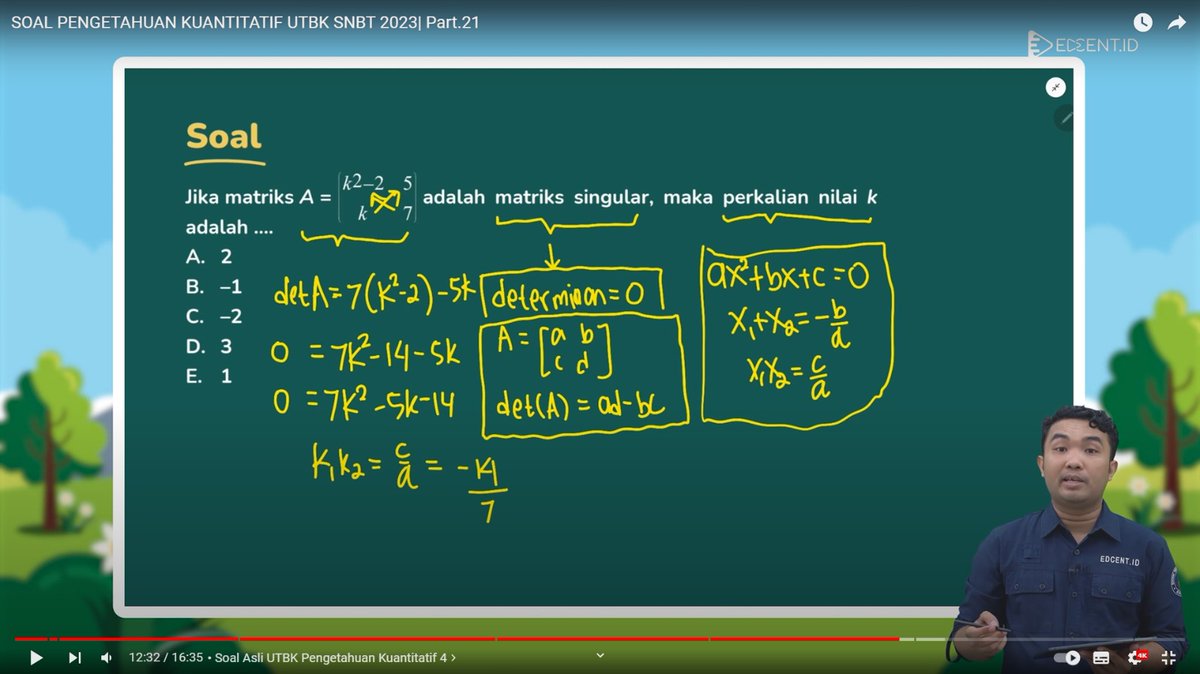 SOAL PENGETAHUAN KUANTITATIF UTBK SNBT 2023| Part.21
EDCENT.ID
Soal
Jika matriks A = |k2−2 5| adalah matriks singular, maka perkalian nilai k
|k 7|
adalah ....
A. 2
B. −1
C. −2
D. 3
E. 1
det A = 7(k²-2) - 5k
0 = 7k² - 14 - 5k
0 = 7k² - 5k - 14
k₁k₂ = c/a = -14/7
determinan = 0
A = [a b]
[c d]
det(A) = ad - bc
ax² + bx + c = 0
x₁ + x₂ = -b/a
x₁x₂ = c/a
EDCENT.ID
12:32 / 16:35 • Soal Asli UTBK Pengetahuan Kuantitatif 4 >
4K